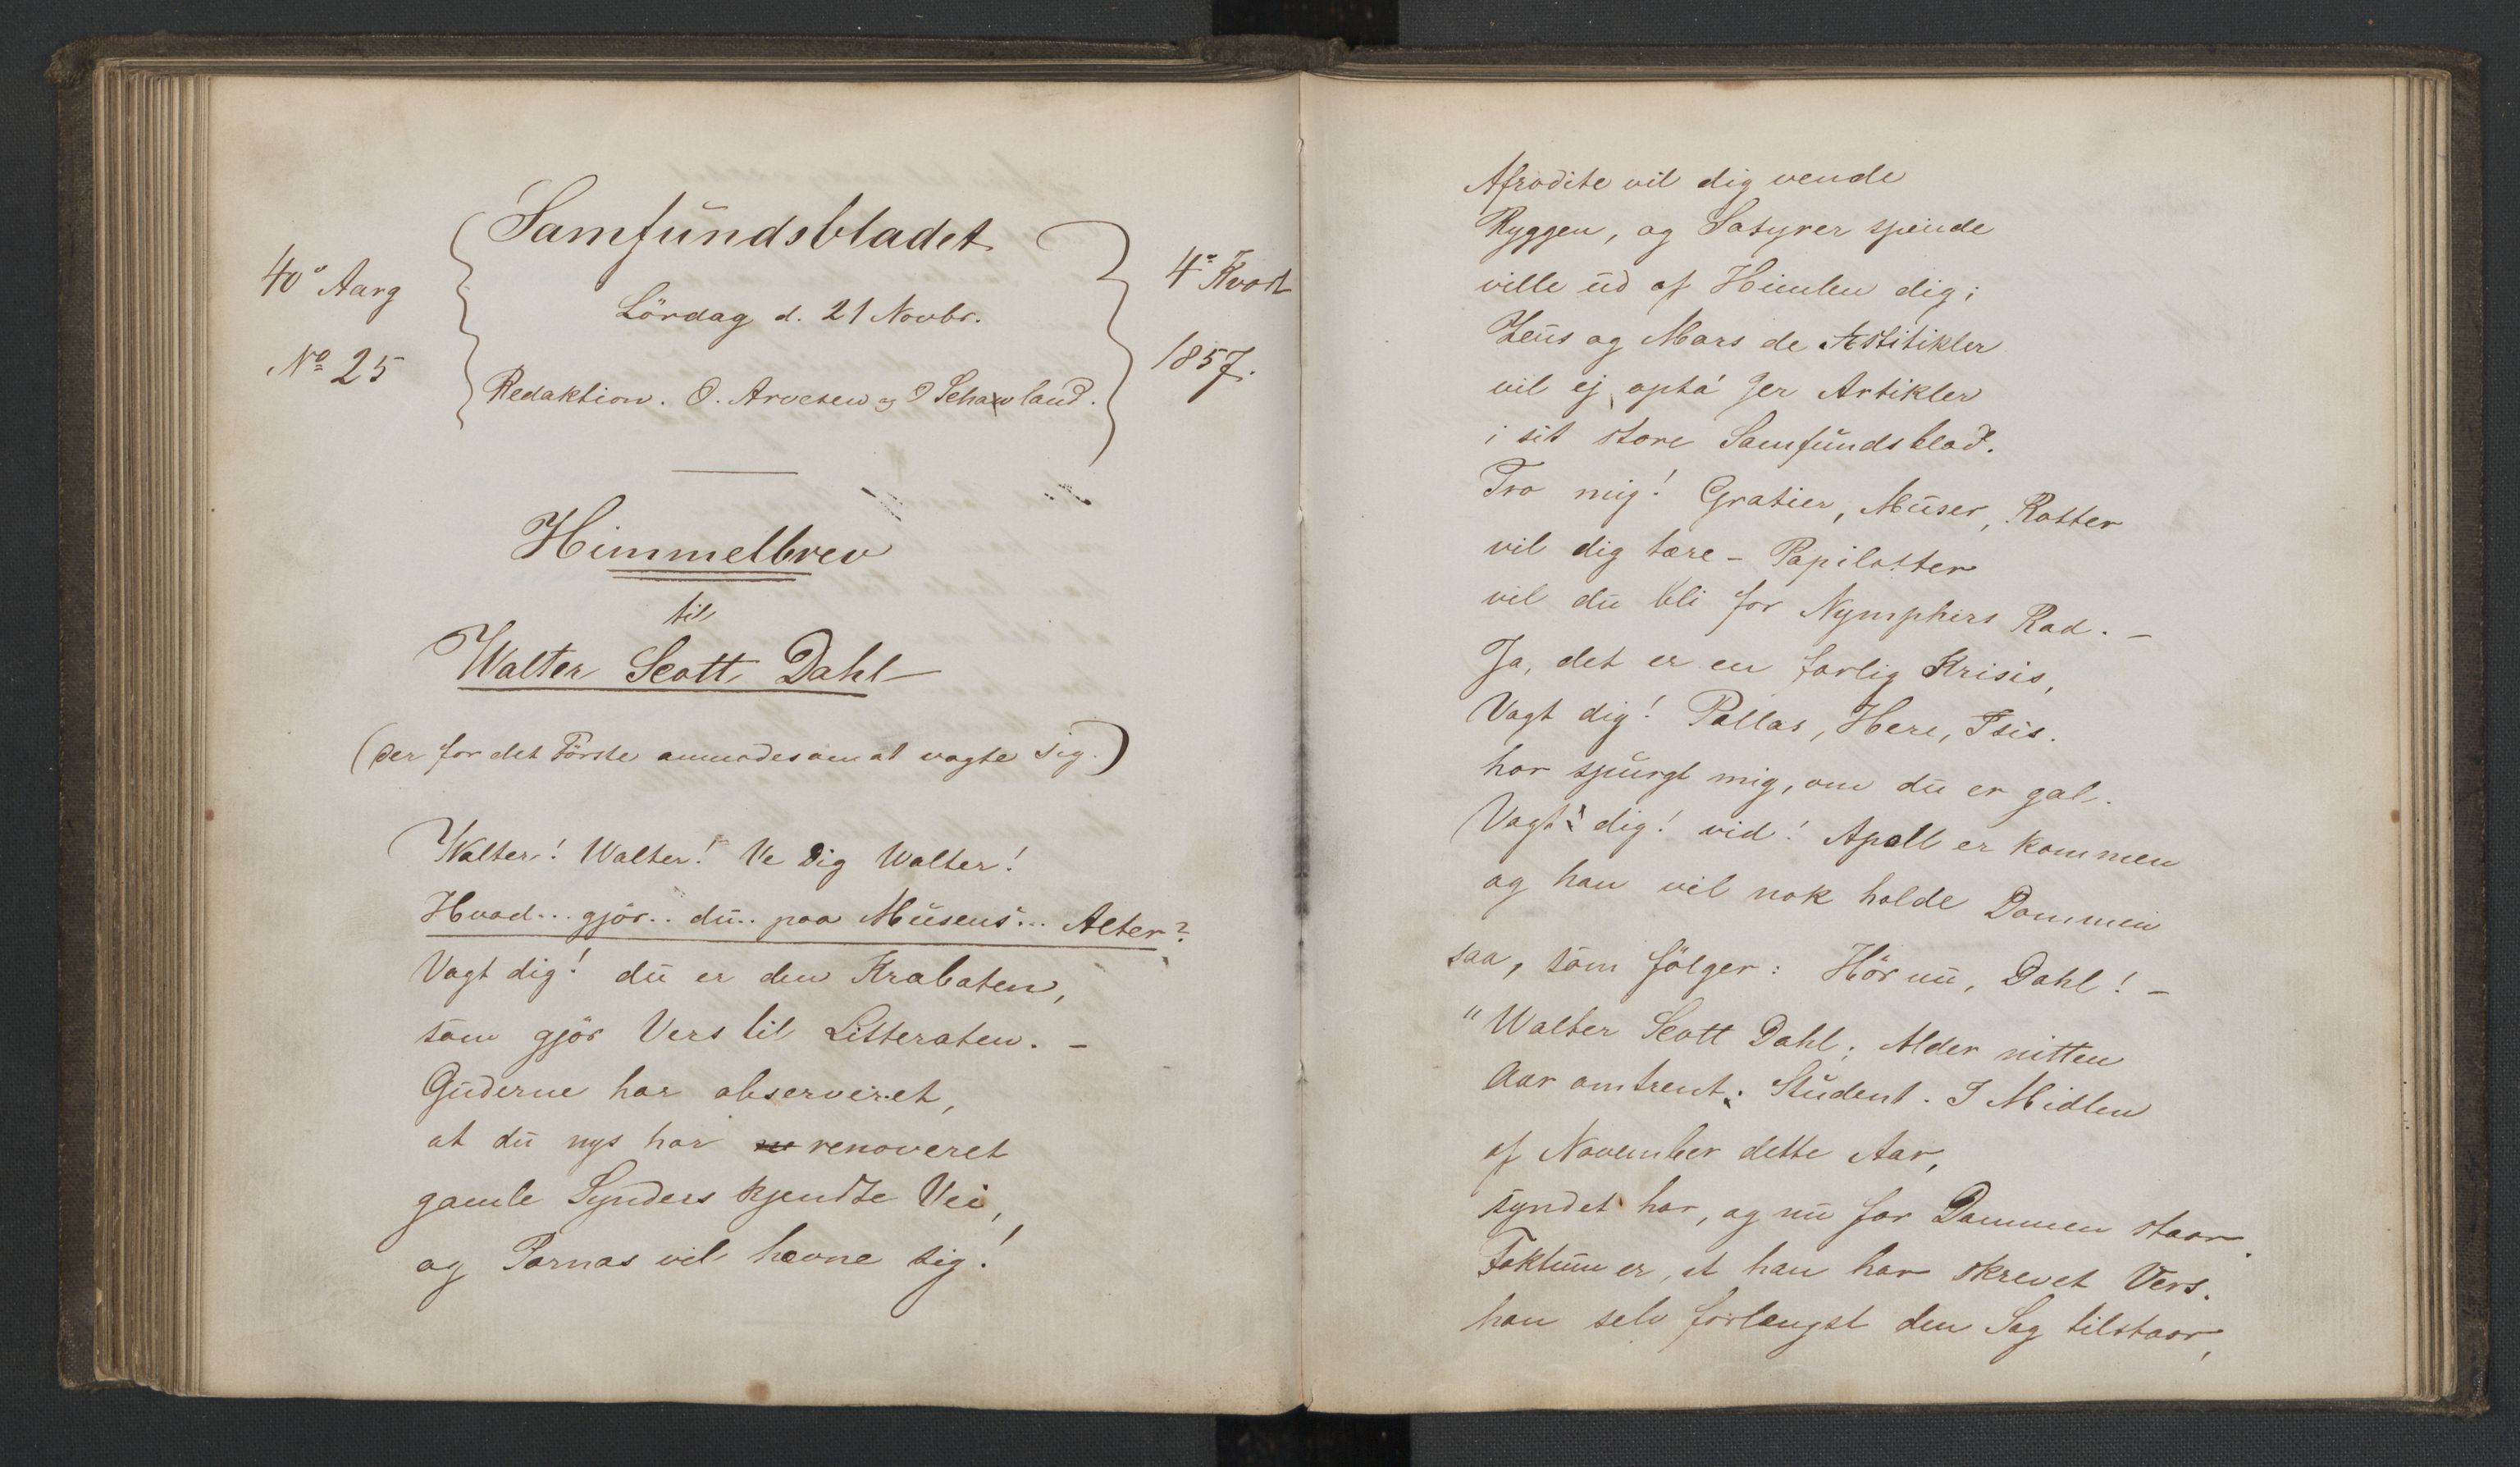 Samfundsbladet
40° Aarg
4° Kvart
Lördag d. 21 Novbr.
No 25
1857.
Redaktion. O. Arvesen og O Schauland.
Himmelbrev
til
Walter Scott Dahl
(der for det Förste anmodes om at vagte sig.)
Walter! Walter! Ve dig Walter!
Hvad... gjör.. du.. paa Musens... Alter?
Vagt dig! du er den Krabaten,
som gjör Vers til Litteraten. –
Guderne har observeret,
at du nys har renoveret
gamle Synders kjendte Vei,
og Parnas vil hævne sig!
Afrodite vil dig vende
Ryggen, og Satyrer spende
ville ud af Himlen dig;
Zeus og Mars de
vil ej opta' Jer Artikler
i sit store Samfundsblad.
Tro mig! Gratier, Muser, Rotter
vil dig tære – Papilotter
vil du bli for Nymphers Rad. –
Ja, det er en farlig Krisis,
Vagt dig! Pallas, Here, Isis.
har spurgt mig, om du er gal.
Vagt dig! vid! Apoll er kommen
og han vil nok holde Dommen
saa, som fölger: Hör nu, Dahl! –
"Walter Scott Dahl; Alder nitten
Aar omtrent; Student. I Midten
af November dette Aar,
syndet har, og nu for Dommen staar.
Faktum er, at han har skrevet Vers.
han selv forlængst den Sag tilstaar,